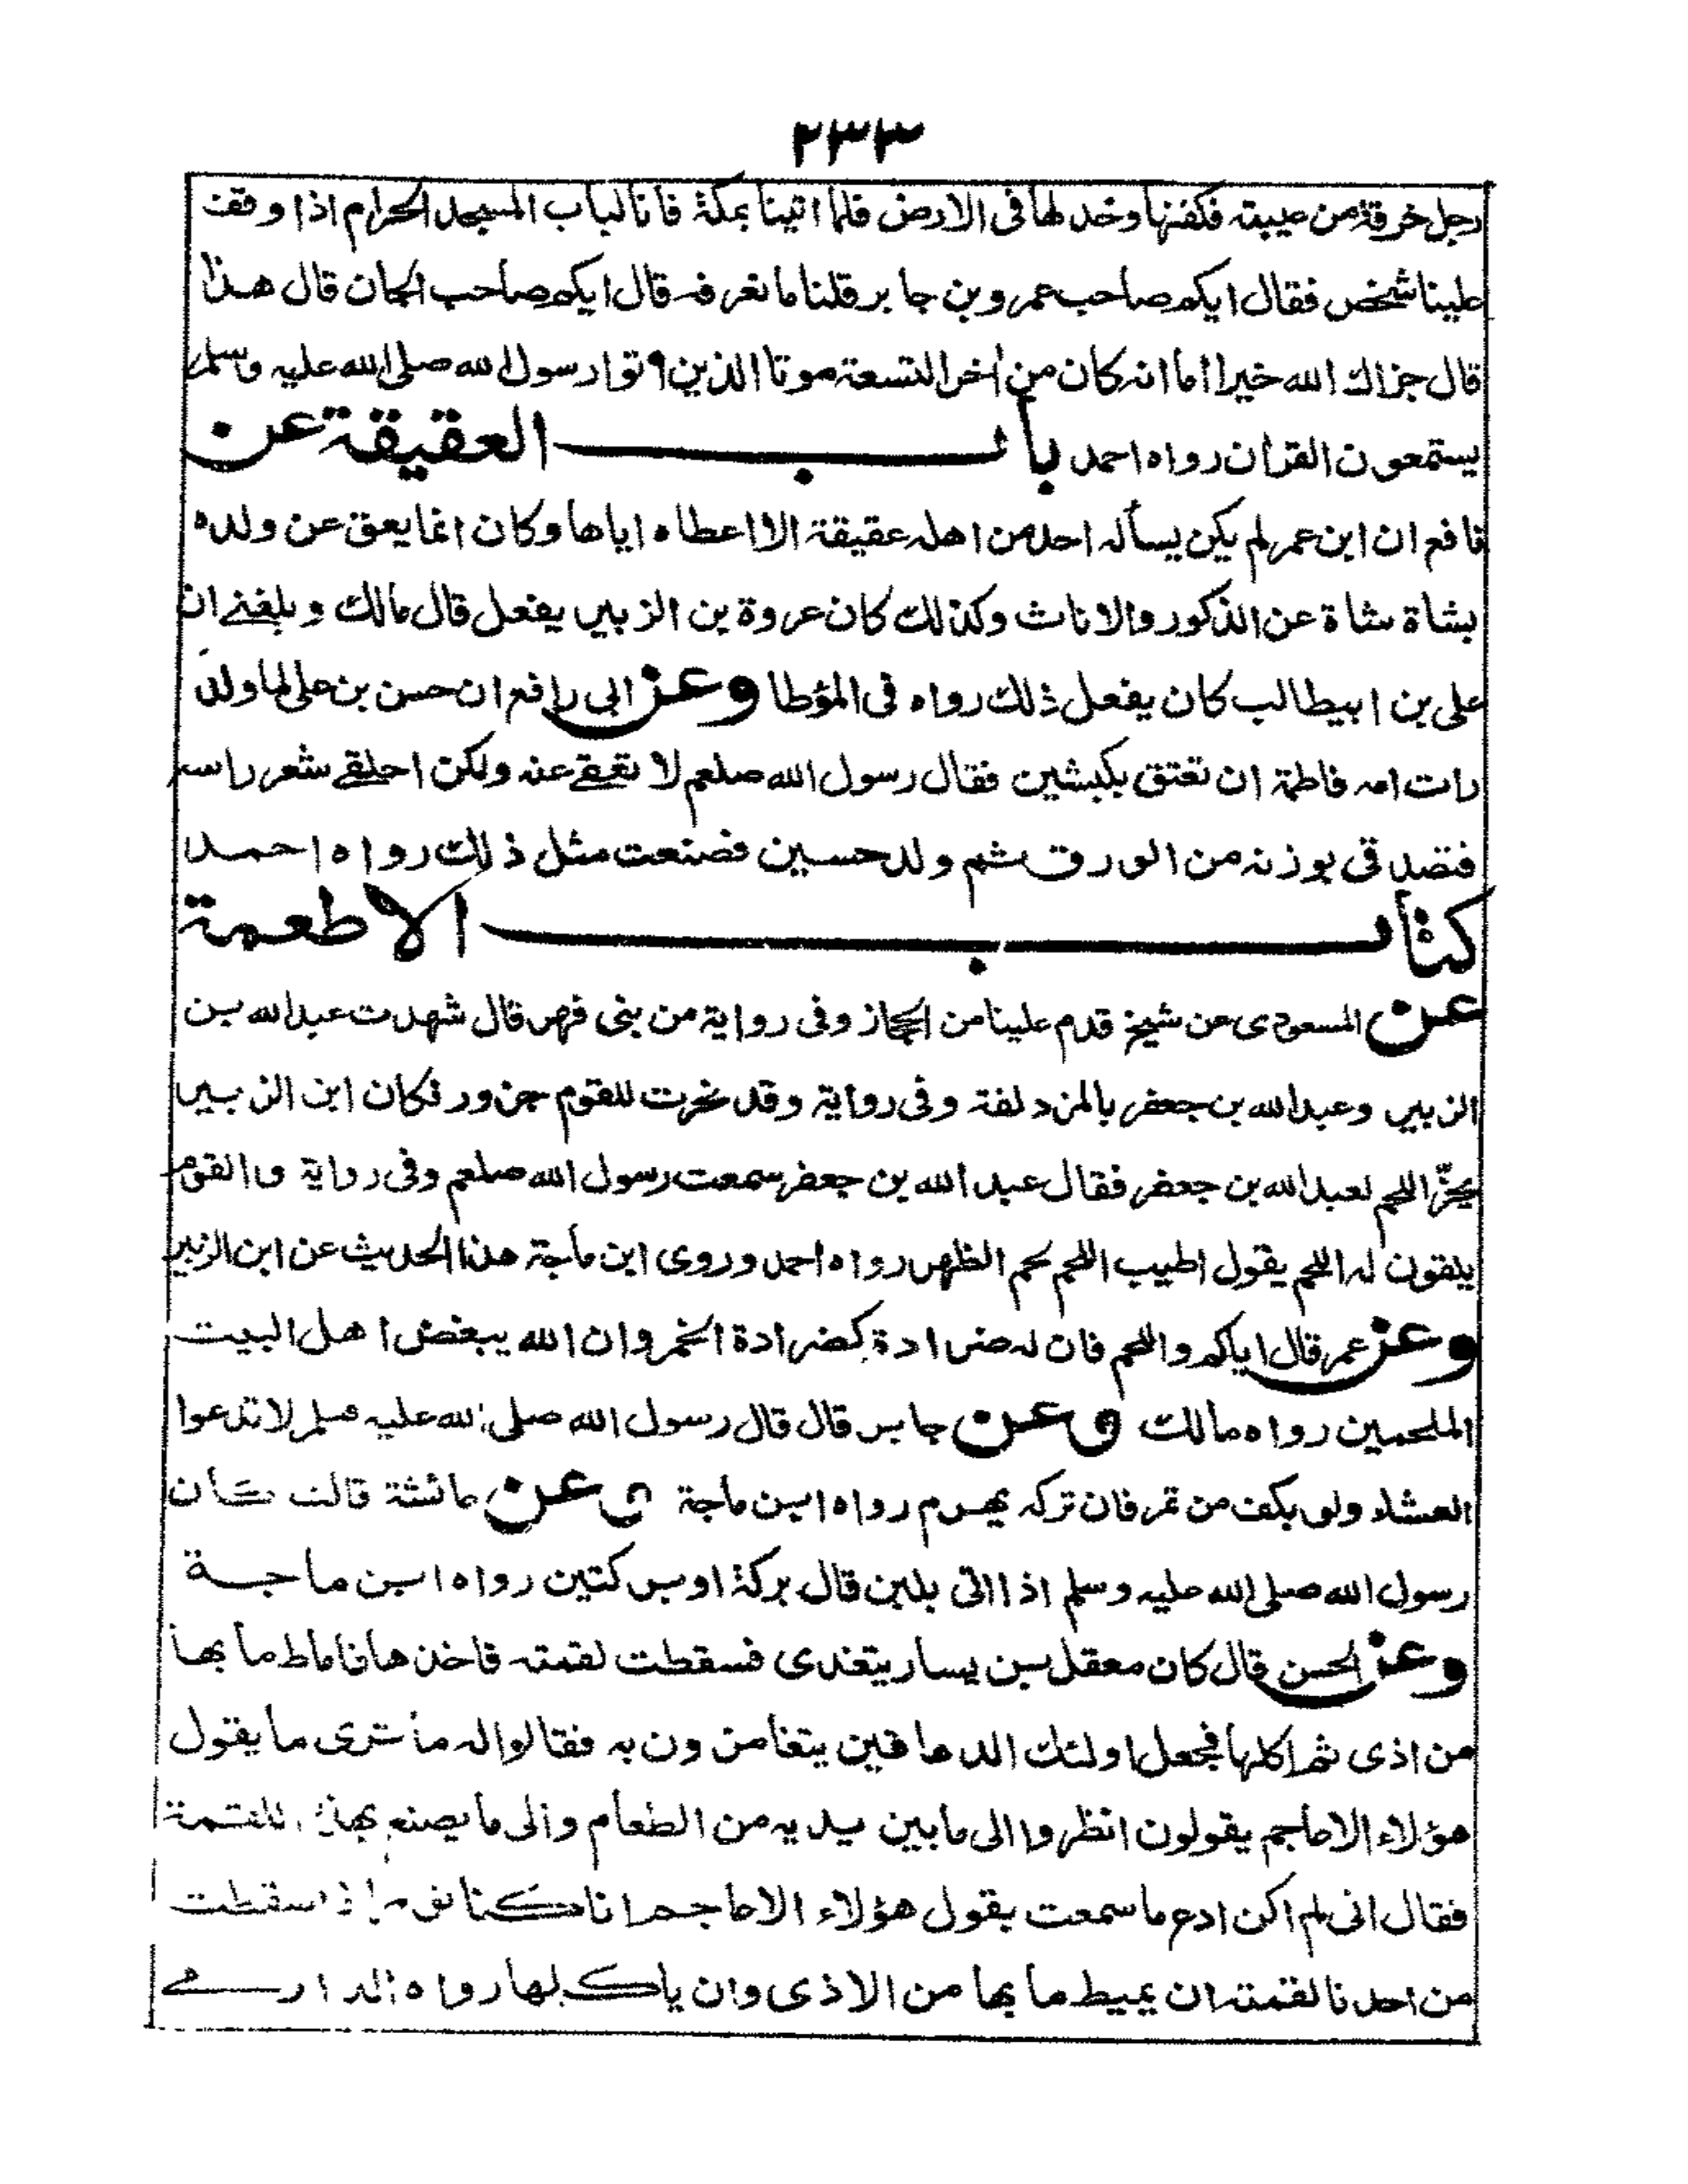 ٢٣٣
رجل خرقة من عيبته فكفنها وخد لها فى الارض فلما اتينا بمكة فانا لباب المسجد الحرام اذا وقف
علينا شخص فقال ايكم صاحب عمرو بن جابر قلنا ما نعرفه قال ايكم صاحب الجان قال هذا
قال جزاك الله خيرا اما انه كان من اخر التسعة موتا الذين اتوا رسول الله صلى الله عليه وسلم
يستمعون القران رواه احمد باب العقيقة عن
نافع ان ابن عمر لم يكن يسأله احد من اهله عقيقة الا اعطاه اياها وكان انما يعق عن ولده
بشاة شاة عن الذكور والاناث وكذلك كان عروة بن الزبير يفعل قال مالك وبلغنے ان
على بن ابيطالب كان يفعل ذلك رواه فى المؤطا وعن ابى رافع ان حسن بن على لما ولد
رات امه فاطمة ان تعتق بكبشين فقال رسول الله صلعم لا تعقے عنه ولكن احلقے شعر راسه
فتصدقى بوزنه من الورق ثم ولد حسين فصنعت مثل ذلك رواه احمد
كتاب الاطعمة
عن المسعودى عن شيخ قدم علينا من الحجاز وفى رواية من بنى فهر قال شهدت عبد الله بن
الزبير وعبد الله بن جعفر بالمزدلفة وفى رواية وقد نحرت للقوم جزور فكان ابن الزبير
يحزّ اللحم لعبد الله بن جعفر فقال عبد الله بن جعفر سمعت رسول الله صلعم وفى رواية والقوم
يلقون له اللحم يقول اطيب اللحم لحم الظهر رواه احمد وروى ابن ماجة هذا الحديث عن ابن الزبير
وعن عمر قال اياكم واللحم فان له ضرادة كضرادة الخمر وان الله يبغض اهل البيت
الملحمين رواه مالك وعن جابر قال قال رسول الله صلى الله عليه وسلم لا تدعوا
العشاء ولو بكف من تمر فان تركه يهرم رواه ابن ماجة وعن عائشة قالت كان
رسول الله صلى الله عليه وسلم اذا اتى بلبن قال بركة او بركتين رواه ابن ماجة
وعن الحسن قال كان معقل بن يسار يتغدى فسقطت لقمته فاخذها فاماط ما بها
من اذى ثم اكلها فجعل اولئك الدهاقين يتغامزون به فقالوا له ما ترى ما يقول
هؤلاء الاعاجم يقولون انظروا الى ما بين يديه من الطعام والى ما يصنع بهذه اللقمة
فقال انى لم اكن ادع ما سمعت بقول هؤلاء الاعاجم انا كنا نؤمر اذا سقطت
من احدنا لقمته ان يميط ما بها من الاذى وان ياكلها رواه الدارمے